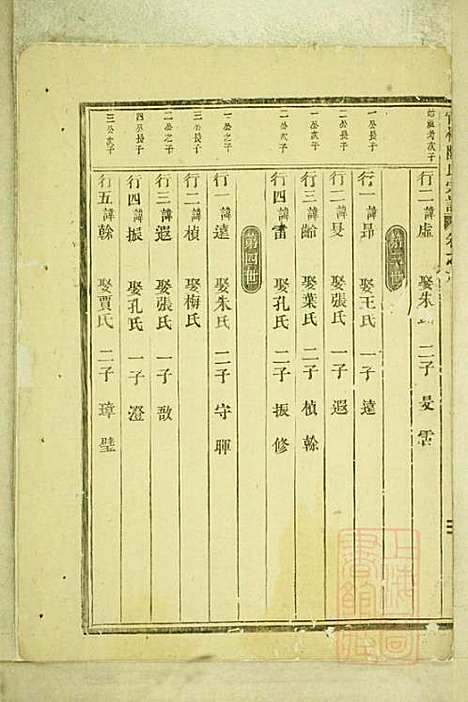 行二 諱虛 娶朱氏 二子 旻 雷
第三世
一公長子
行一 諱昂 娶王氏 一子 達
二公長子
行二 諱旻 娶張氏 一子 遐
一公次子
行三 諱齡 娶葉氏 二子 楨 榦
二公次子
行四 諱雷 娶孔氏 二子 振 修
第四世
一公之子
行一 諱達 娶朱氏 二子 守 暉
三公長子
行二 諱楨 娶梅氏
二公之子
行三 諱遐 娶張氏 一子 散
四公長子
行四 諱振 娶孔氏 一子 澄
三公次子
行五 諱榦 娶賈氏 二子 璋 璧